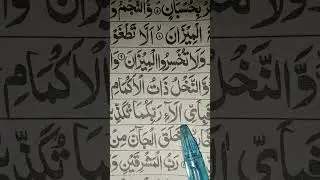 بِحُسْبَانٍ ۝ وَّالنَّجْمُ وَ
الْمِيْزَانَ ۝ اَلَّا تَطْغَوْا
وَلَا تُخْسِرُوا الْمِيْزَانَ ۝
وَّالنَّخْلُ ذَاتُ الْاَكْمَامِ
فَبِاَيِّ اٰلَآءِ رَبِّكُمَا تُكَذِّبٰنِ
خَلَقَ الْجَآنَّ مِنْ
رَبُّ الْمَشْرِقَيْنِ وَ